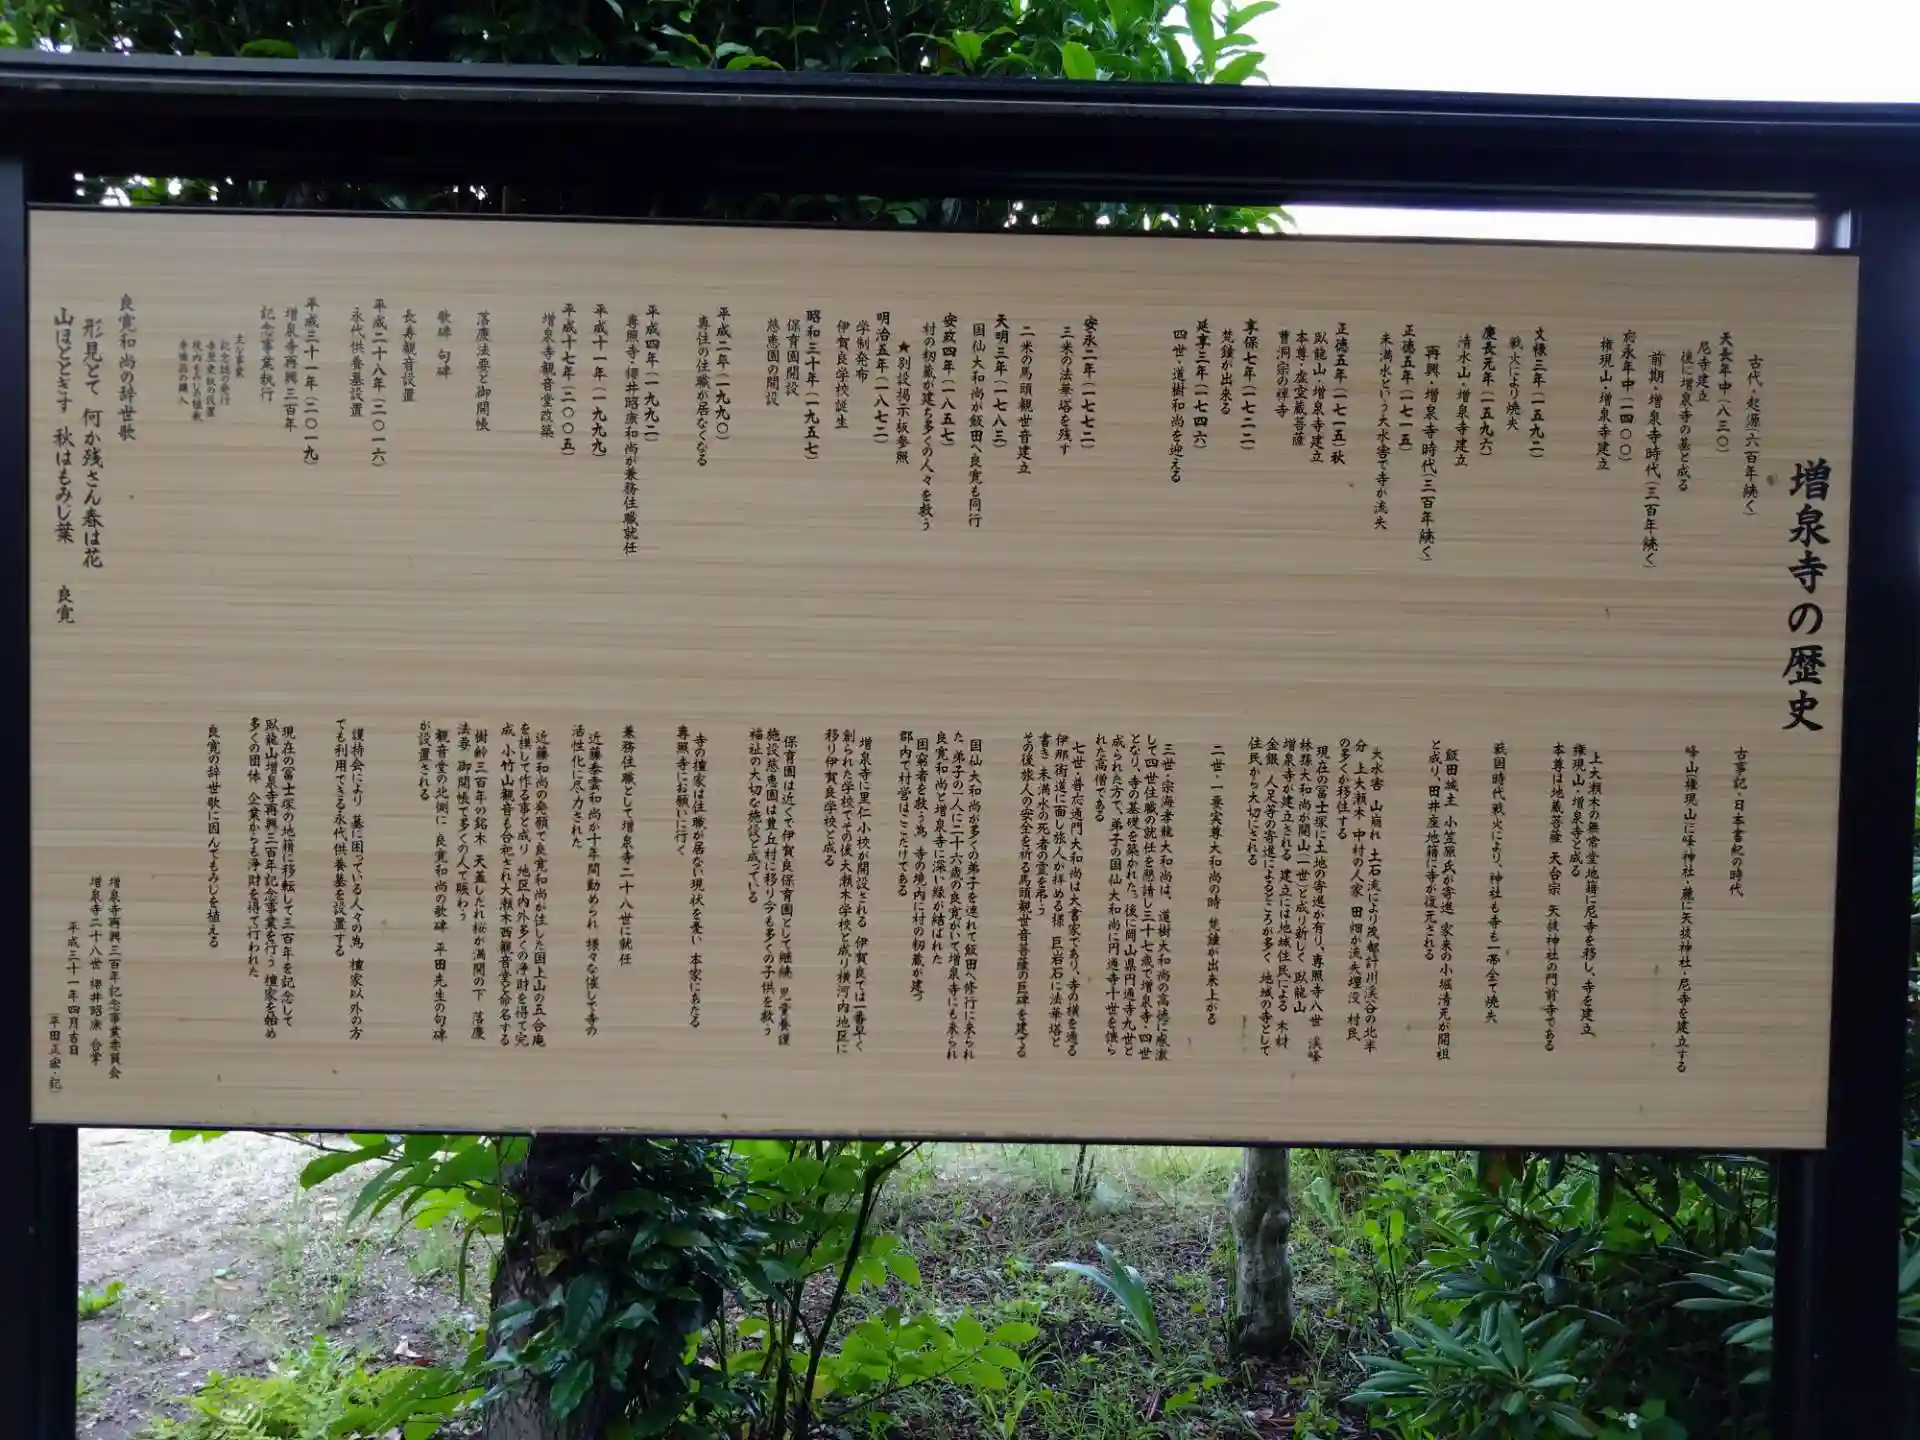 増泉寺の歴史
古代・起源(六百年続く)
天長年中(八三〇)
尼寺建立
後に増泉寺の基と成る
前期・増泉寺時代(三百年続く)
応永年中(一四〇〇)
権現山・増泉寺建立
文禄三年(一五九二)
戦火により焼失
慶長元年(一五九六)
清水山・増泉寺建立
再興・増泉寺時代(三百年続く)
正徳五年(一七一五)
未満水という大水害で寺が流失
正徳五年(一七一五)秋
臥龍山・増泉寺建立
本尊・虚空蔵菩薩
曹洞宗の禅寺
享保七年(一七二二)
梵鐘が出来る
延享三年(一七四六)
四世・道樹和尚を迎える
安永二年(一七七二)
三米の法華塔を残す
二米の馬頭観世音建立
天明三年(一七八三)
国仙大和尚が飯田へ良寛も同行
安政四年(一八五七)
村の籾蔵が建ち多くの人々を救う
★別設掲示板参照
明治五年(一八七二)
学制発布
伊賀良学校誕生
昭和三十年(一九五七)
保育園開設
慈恵園の開設
平成二年(一九九〇)
専住の住職が居なくなる
平成四年(一九九二)
専照寺・櫻井昭康和尚が兼務住職就任
平成十一年(一九九九)
平成十七年(二〇〇五)
増泉寺観音堂改築
落慶法要と御開帳
歌碑 句碑
長寿観音設置
平成二十八年(二〇一六)
永代供養墓設置
平成三十一年(二〇一九)
増泉寺再興三百年
記念事業執行
主な事業
記念誌の発行
寺歴史板の設置
境内もみじの植栽
寺備品の購入
良寛和尚の辞世歌
形見とて 何か残さん春は花
山ほととぎす 秋はもみじ葉 良寛
古事記・日本書紀の時代
峰山(権現山)に峰神社・麓に矢抜神社・尼寺を建立する
上大瀬木の無常堂地籍に尼寺を移し、寺を建立、
権現山・増泉寺と成る
本尊は地蔵菩薩 天台宗 矢抜神社の門前寺である
戦国時代戦火により、神社も寺も一帯全て焼失
飯田城主 小笠原氏が寄進 家来の小堀清元が開祖
と成り、田井座地籍に寺が復元される
大水害 山崩れ 土石流により茂都計川渓谷の北半
分 上大瀬木 中村の人家 田畑が流失埋没 村民
の多くが移住する
現在の冨士塚に土地の寄進が有り、専照寺八世 渓峰
林孫大和尚が開山(一世)と成り新しく 臥龍山
増泉寺が建立される 建立には地域住民による 木材
金銀 人足等の寄進によるところが多く 地域の寺として
住民から大切にされる
二世・一乗実尊大和尚の時 梵鐘が出来上がる
三世・宗海孝龍大和尚は、道樹大和尚の高徳に感激
して四世住職の就任を懇請し三十七歳で増泉寺・四世
となり、寺の基礎を築かれた。後に岡山県円通寺九世と
成られた方で、弟子の国仙大和尚に円通寺十世を譲ら
れた高僧である
七世・普応透門大和尚は大書家であり、寺の横を通る
伊那街道に面し旅人が拝める様 巨岩石に法華塔と
書き 未満水の死者の霊を弔う
その後旅人の安全を祈る馬頭観世音菩薩の巨碑を建てる
国仙大和尚が多くの弟子を連れて飯田へ修行に来られ
た 弟子の一人に二十六歳の良寛がいて増泉寺にも来られ
良寛和尚と増泉寺に深い縁が結ばれた
困窮者を救う為 寺の境内に村の籾蔵が建つ
郡内で村営はここだけである
増泉寺に里仁小校が開設される 伊賀良では一番早く
創られた学校でその後大瀬木学校と成り横河内地区に
移り伊賀良学校と成る
保育園は近くで伊賀良保育園として継続 児童養護
施設慈恵園は豊丘村に移り今も多くの子供を救う
福祉の大切な施設と成っている
寺の檀家は住職が居ない現状を憂い 本家にあたる
専照寺にお願いに行く
兼務住職として増泉寺二十八世に就任
近藤泰雲和尚が十年間勤められ 様々な催しで寺の
活性化に尽力された
近藤和尚の発願で良寛和尚が住した国上山の五合庵
を模して作る事と成り 地区内外多くの浄財を得て完
成 小竹山観音も合祀され大瀬木西観音堂と命名する
樹齢三百年の銘木 天蓋しだれ桜が満開の下 落慶
法要 御開帳で多くの人で賑わう
観音堂の北側に 良寛和尚の歌碑 平田先生の句碑
が設置される
護持会により 墓に困っている人々の為 檀家以外の方
でも利用できる永代供養墓を設置する
現在の冨士塚の地籍に移転して三百年を記念して
臥龍山増泉寺再興三百年記念事業を行う 檀家を始め
多くの団体 企業からも浄財を得て行われた
良寛の辞世歌に因んでもみじを植える
増泉寺再興三百年記念事業委員会
増泉寺二十八世 櫻井昭康 合掌
平成三十一年四月吉日
平田正宏・記)